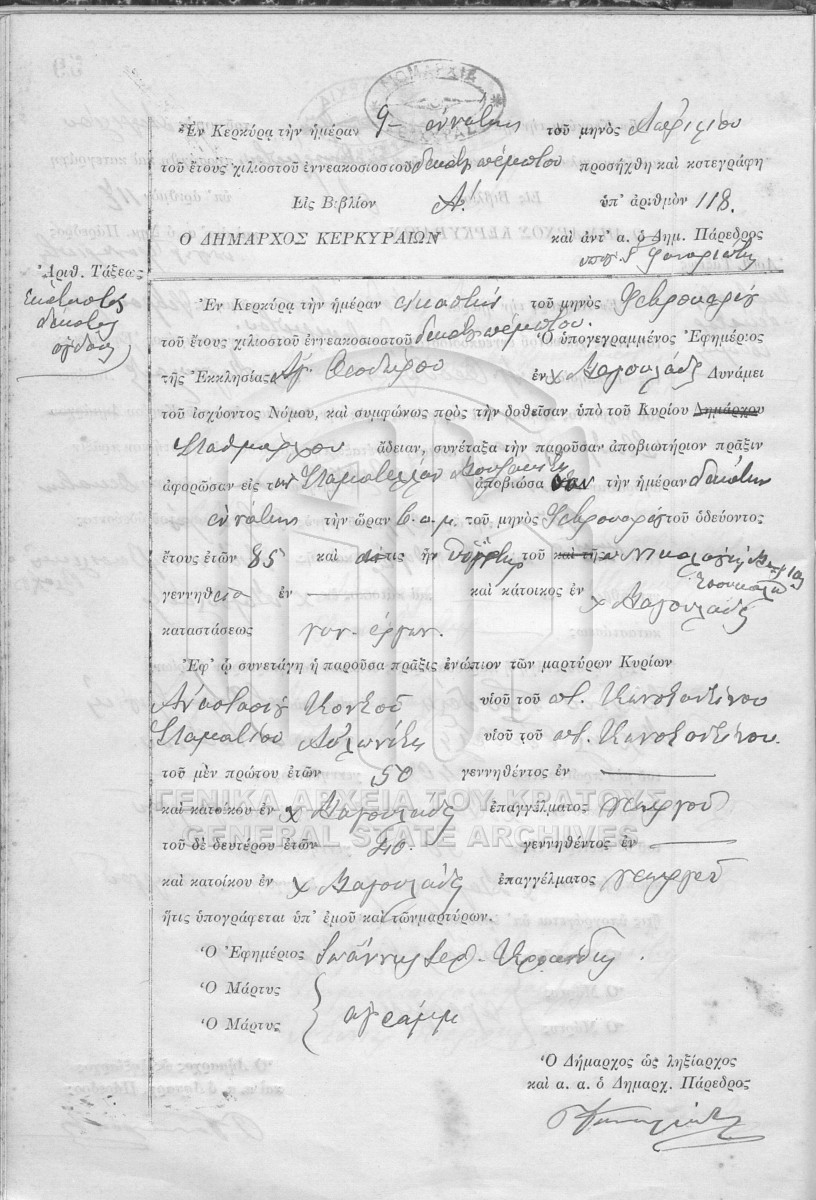 ΝΟΜΑΡΧΙΑ
Ἐν Κερκύρᾳ τὴν ἡμέραν 9 - ἐννάτην τοῦ μηνὸς Ἀπριλίου
τοῦ ἔτους χιλιοστοῦ ἐννεακοσιοστοῦ δεκάτου πέμπτου προσήχθη καὶ κατεγράφη
Εἰς Βιβλίον Α! ὑπ' ἀριθμὸν 118.
Ο ΔΗΜΑΡΧΟΣ ΚΕΡΚΥΡΑΙΩΝ καὶ ἀντ' α. ὁ Δημ. Πάρεδρος
Ἀριθ. Τάξεως
Ἑκατοστὸς
δέκατος
ὄγδοος
Ἐν Κερκύρᾳ τὴν ἡμέραν εἰκοστὴν τοῦ μηνὸς Φεβρουαρίου
τοῦ ἔτους χιλιοστοῦ ἐννεακοσιοστοῦ δεκάτου πέμπτου. Ὁ ὑπογεγραμμένος Ἐφημέριος
τῆς Ἐκκλησίας Ἁγ. Θεοδώρου ἐν χ Δυνάμει
τοῦ ἰσχύοντος Νόμου, καὶ συμφώνως πρὸς τὴν δοθεῖσαν ὑπὸ τοῦ Κυρίου Δημάρχου
Σταθμάρχου ἄδειαν, συνέταξα τὴν παροῦσαν ἀποβιωτήριον πρᾶξιν
ἀφορῶσαν εἰς τὴν ἀποβιώσασαν τὴν ἡμέραν δεκάτην
ἐννάτην τὴν ὥραν 6. α. μ. τοῦ μηνὸς Φεβρουαρίου τοῦ ὁδεύοντος
ἔτους ἐτῶν 85 καὶ ἥτις ἦν θυγάτηρ τοῦ καὶ τῆς Νικολάου
γεννηθεῖσα ἐν — καὶ κάτοικος ἐν χ
καταστάσεως
Ἐφ' ᾧ συνετάγη ἡ παροῦσα πρᾶξις ἐνώπιον τῶν μαρτύρων Κυρίων
Ἀναστασίου υἱοῦ τοῦ ποτ. Κωνσταντίνου
Σταματίου Αὐλωνίτη υἱοῦ τοῦ ποτ. Κωνσταντίνου.
τοῦ μὲν πρώτου ἐτῶν 50 γεννηθέντος ἐν —
ΓΕΝΙΚΑ ΑΡΧΕΙΑ ΤΟΥ ΚΡΑΤΟΥΣ
καὶ κατοίκου ἐν χ ἐπαγγέλματος γεωργοῦ
GENERAL STATE ARCHIVES
τοῦ δὲ δευτέρου ἐτῶν 40. γεννηθέντος ἐν —
καὶ κατοίκου ἐν χ ἐπαγγέλματος γεωργοῦ
ἥτις ὑπογράφεται ὑπ' ἐμοῦ καὶ τῶν μαρτύρων.
Ὁ Ἐφημέριος Ἰωάννης Ἱερ.
Ὁ Μάρτυς
Ὁ Μάρτυς ἀγράμμ
Ὁ Δήμαρχος ὡς ληξίαρχος
καὶ α. α. ὁ Δημαρχ. Πάρεδρος